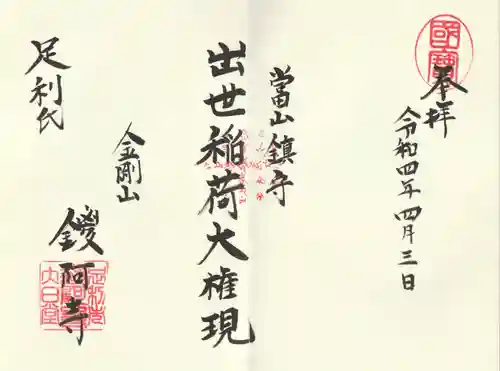 國寶
奉拝
令和四年四月三日
當山鎮守
出世稲荷大権現
足利氏
金剛山
鑁阿寺